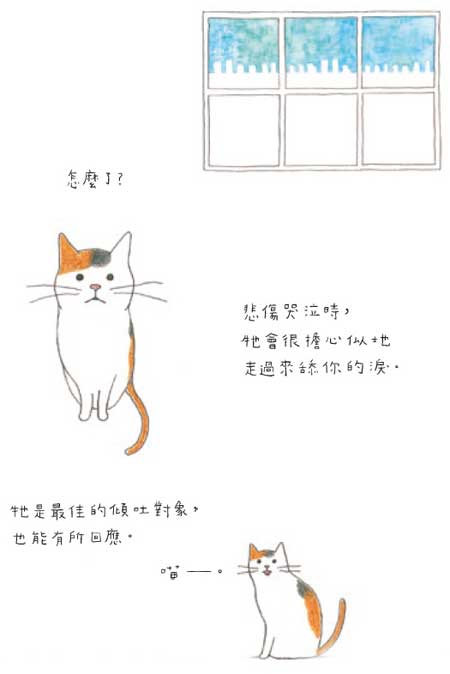 怎麼了?
悲傷哭泣時,
牠會很擔心似地
走過來舔你的淚。
牠是最佳的傾吐對象,
也能有所回應。
喵——。